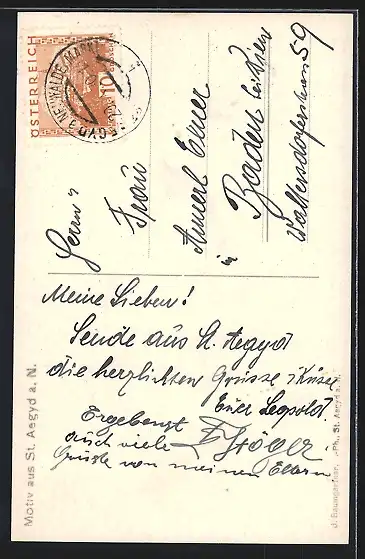 ÖSTERREICH
10
ST. AEGYD a. NEUWALDE (MARKT)
Herrn u
Frau
Annerl Exner
in Baden bei Wien
Waltersdorferstrasse 59
Meine Lieben!
Sende aus St. Aegyd
die herzlichsten Grüsse & Küsse
Euer Leopold
Ergebenst
auch viele
Grüsse von meinen Eltern
Motiv aus St. Aegyd a. N.
J. Baumgartner, Ph., St. Aegyd a. N.